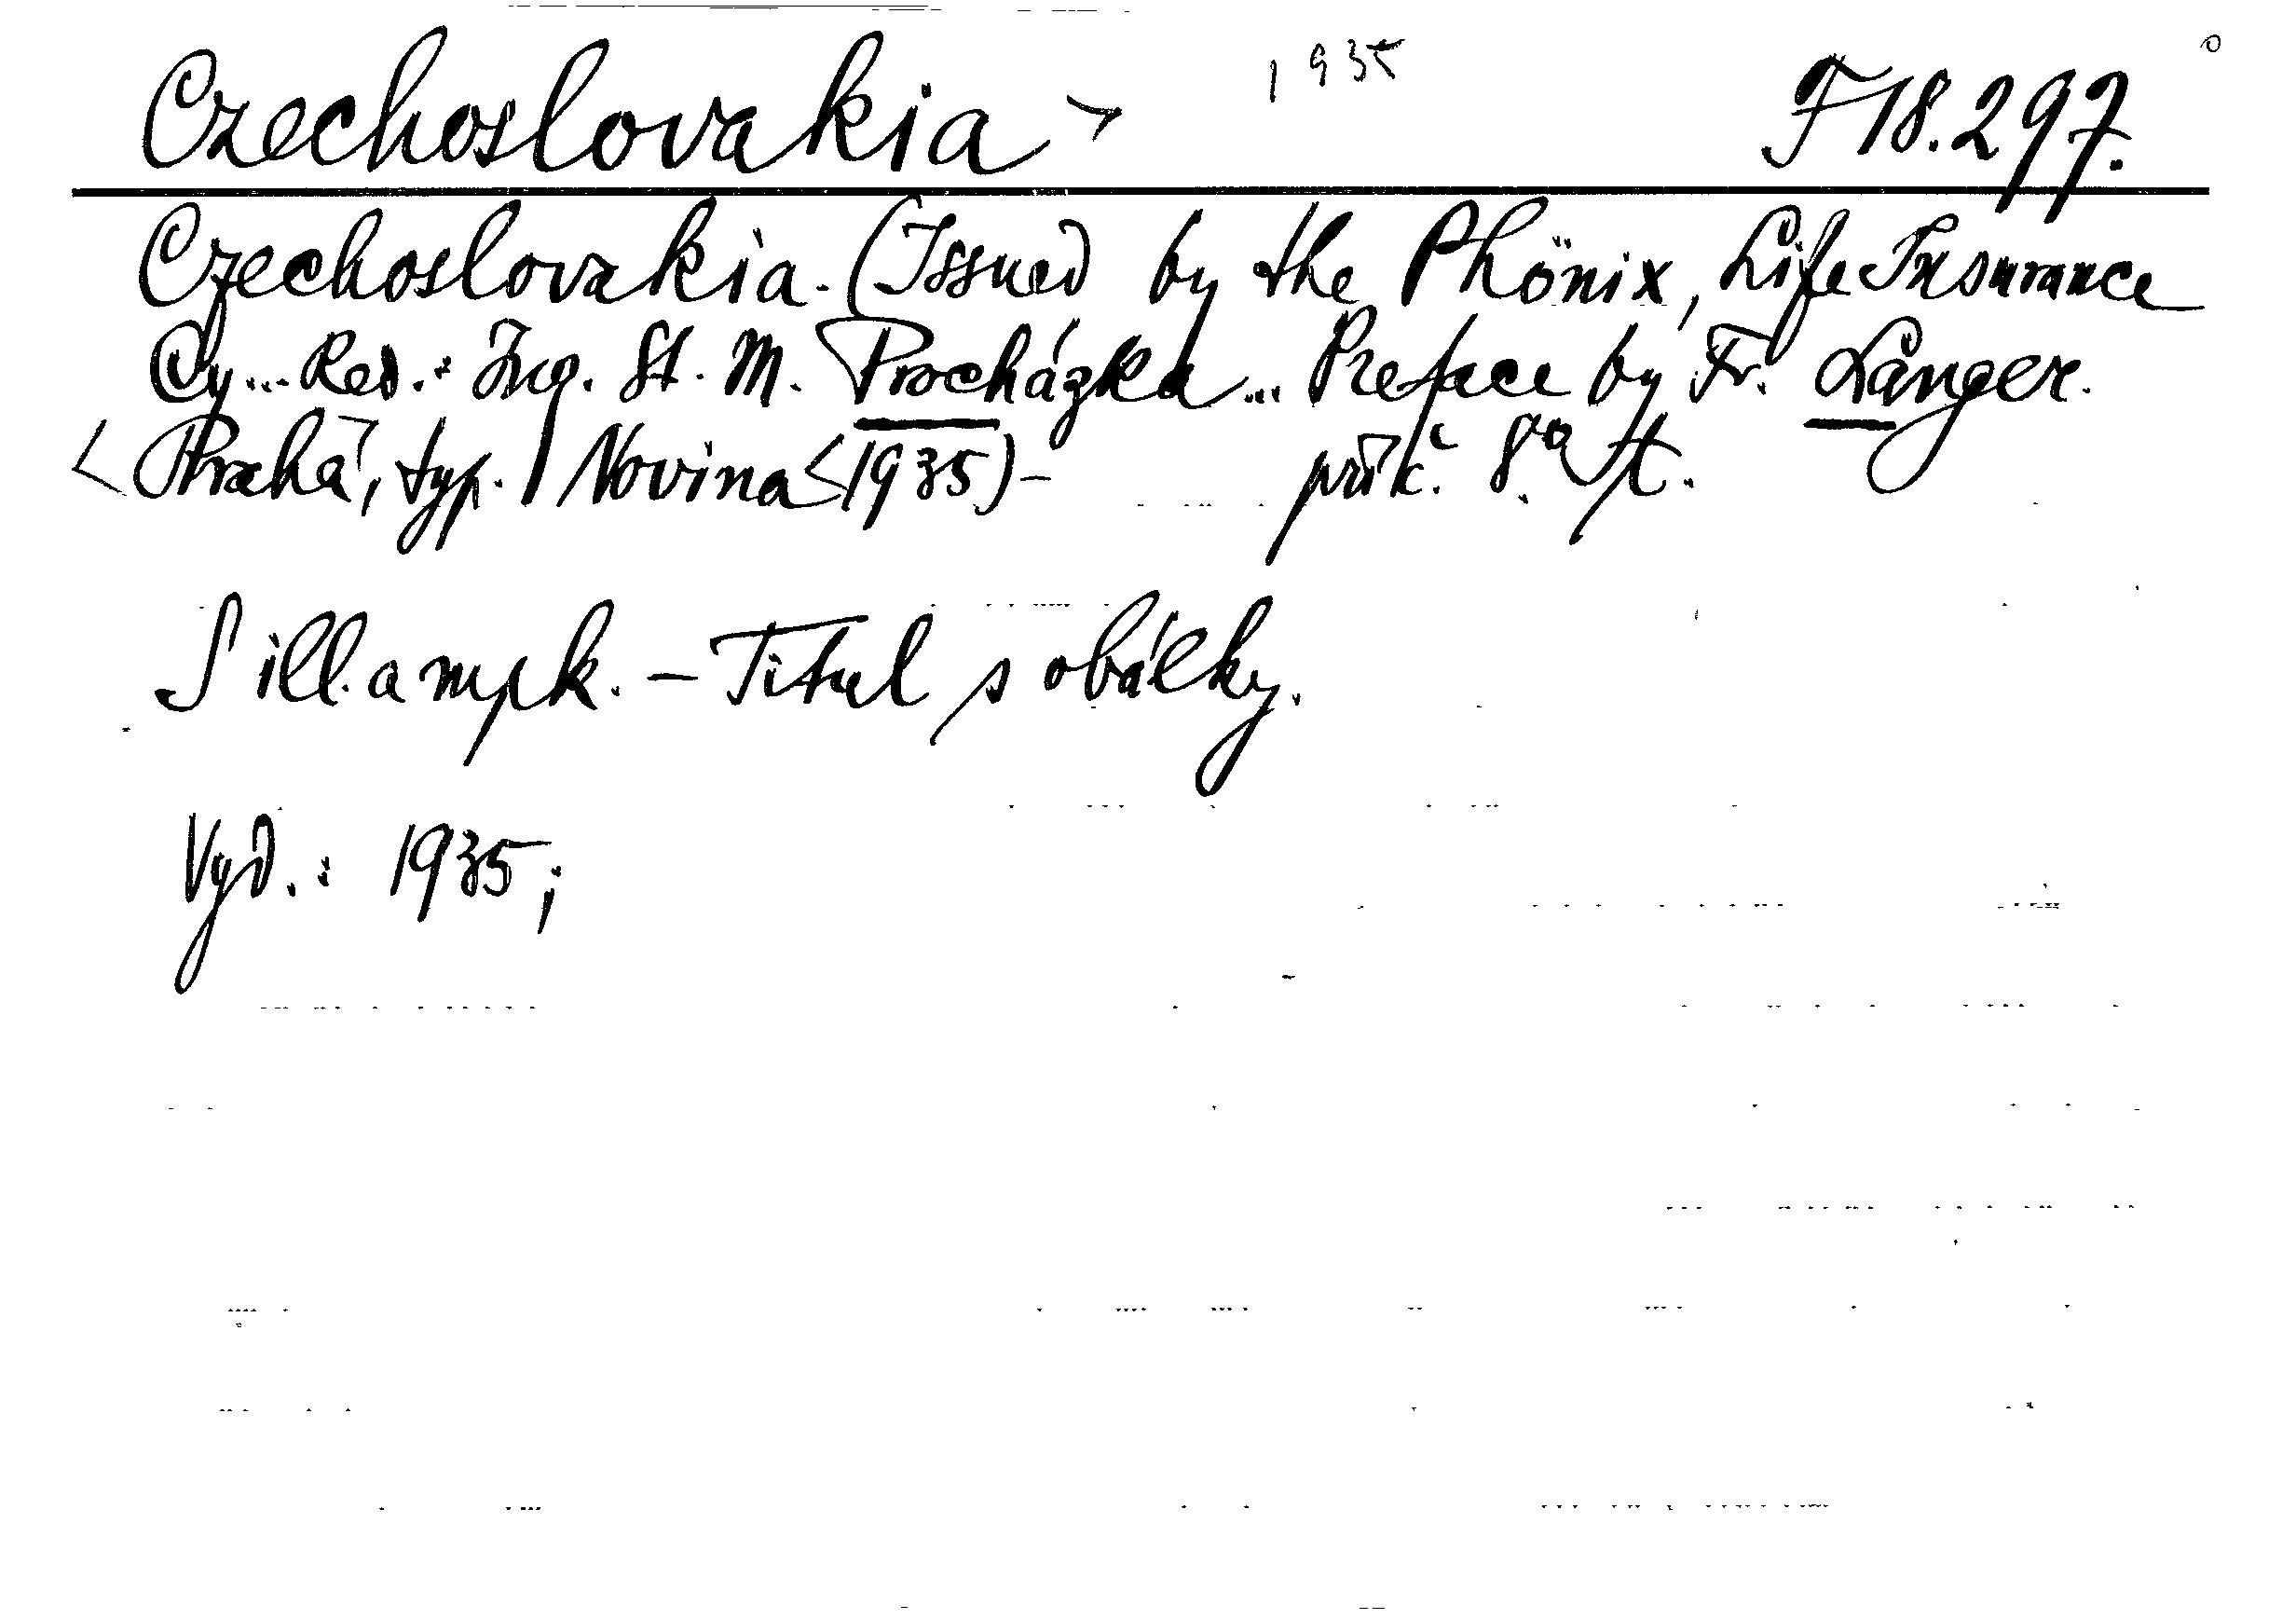 Czechoslovakia 1935 F 18.297.
Czechoslovakia. (Issued by the Phönix, Life Insurance
Cy... Red.: Ing. St. M. Procházka... Preface by Fr. Langer.
<Praha, typ. Novina <1935) - 8° 
S ill. a mpk. - Titul s obálky.
Vyd.: 1935;